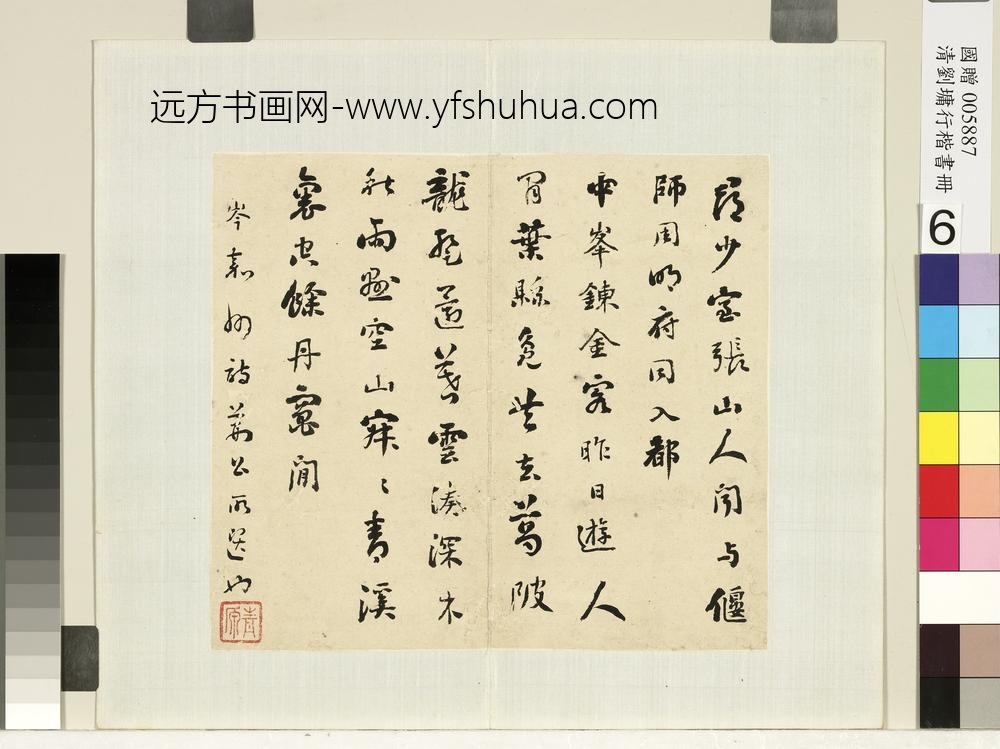 远方书画网-www.yfshuhua.com
國贈 005887
清劉墉行楷書冊
6
尋少室張山人聞与偃
師周明府同入都
中峯鍊金客昨日遊人
間葉縣鳧共去葛陂
龍暫還春雲湊深水
秋雨懸空山寂〻青溪
裏空餘丹竈間
岑嘉州詩荊公所選也